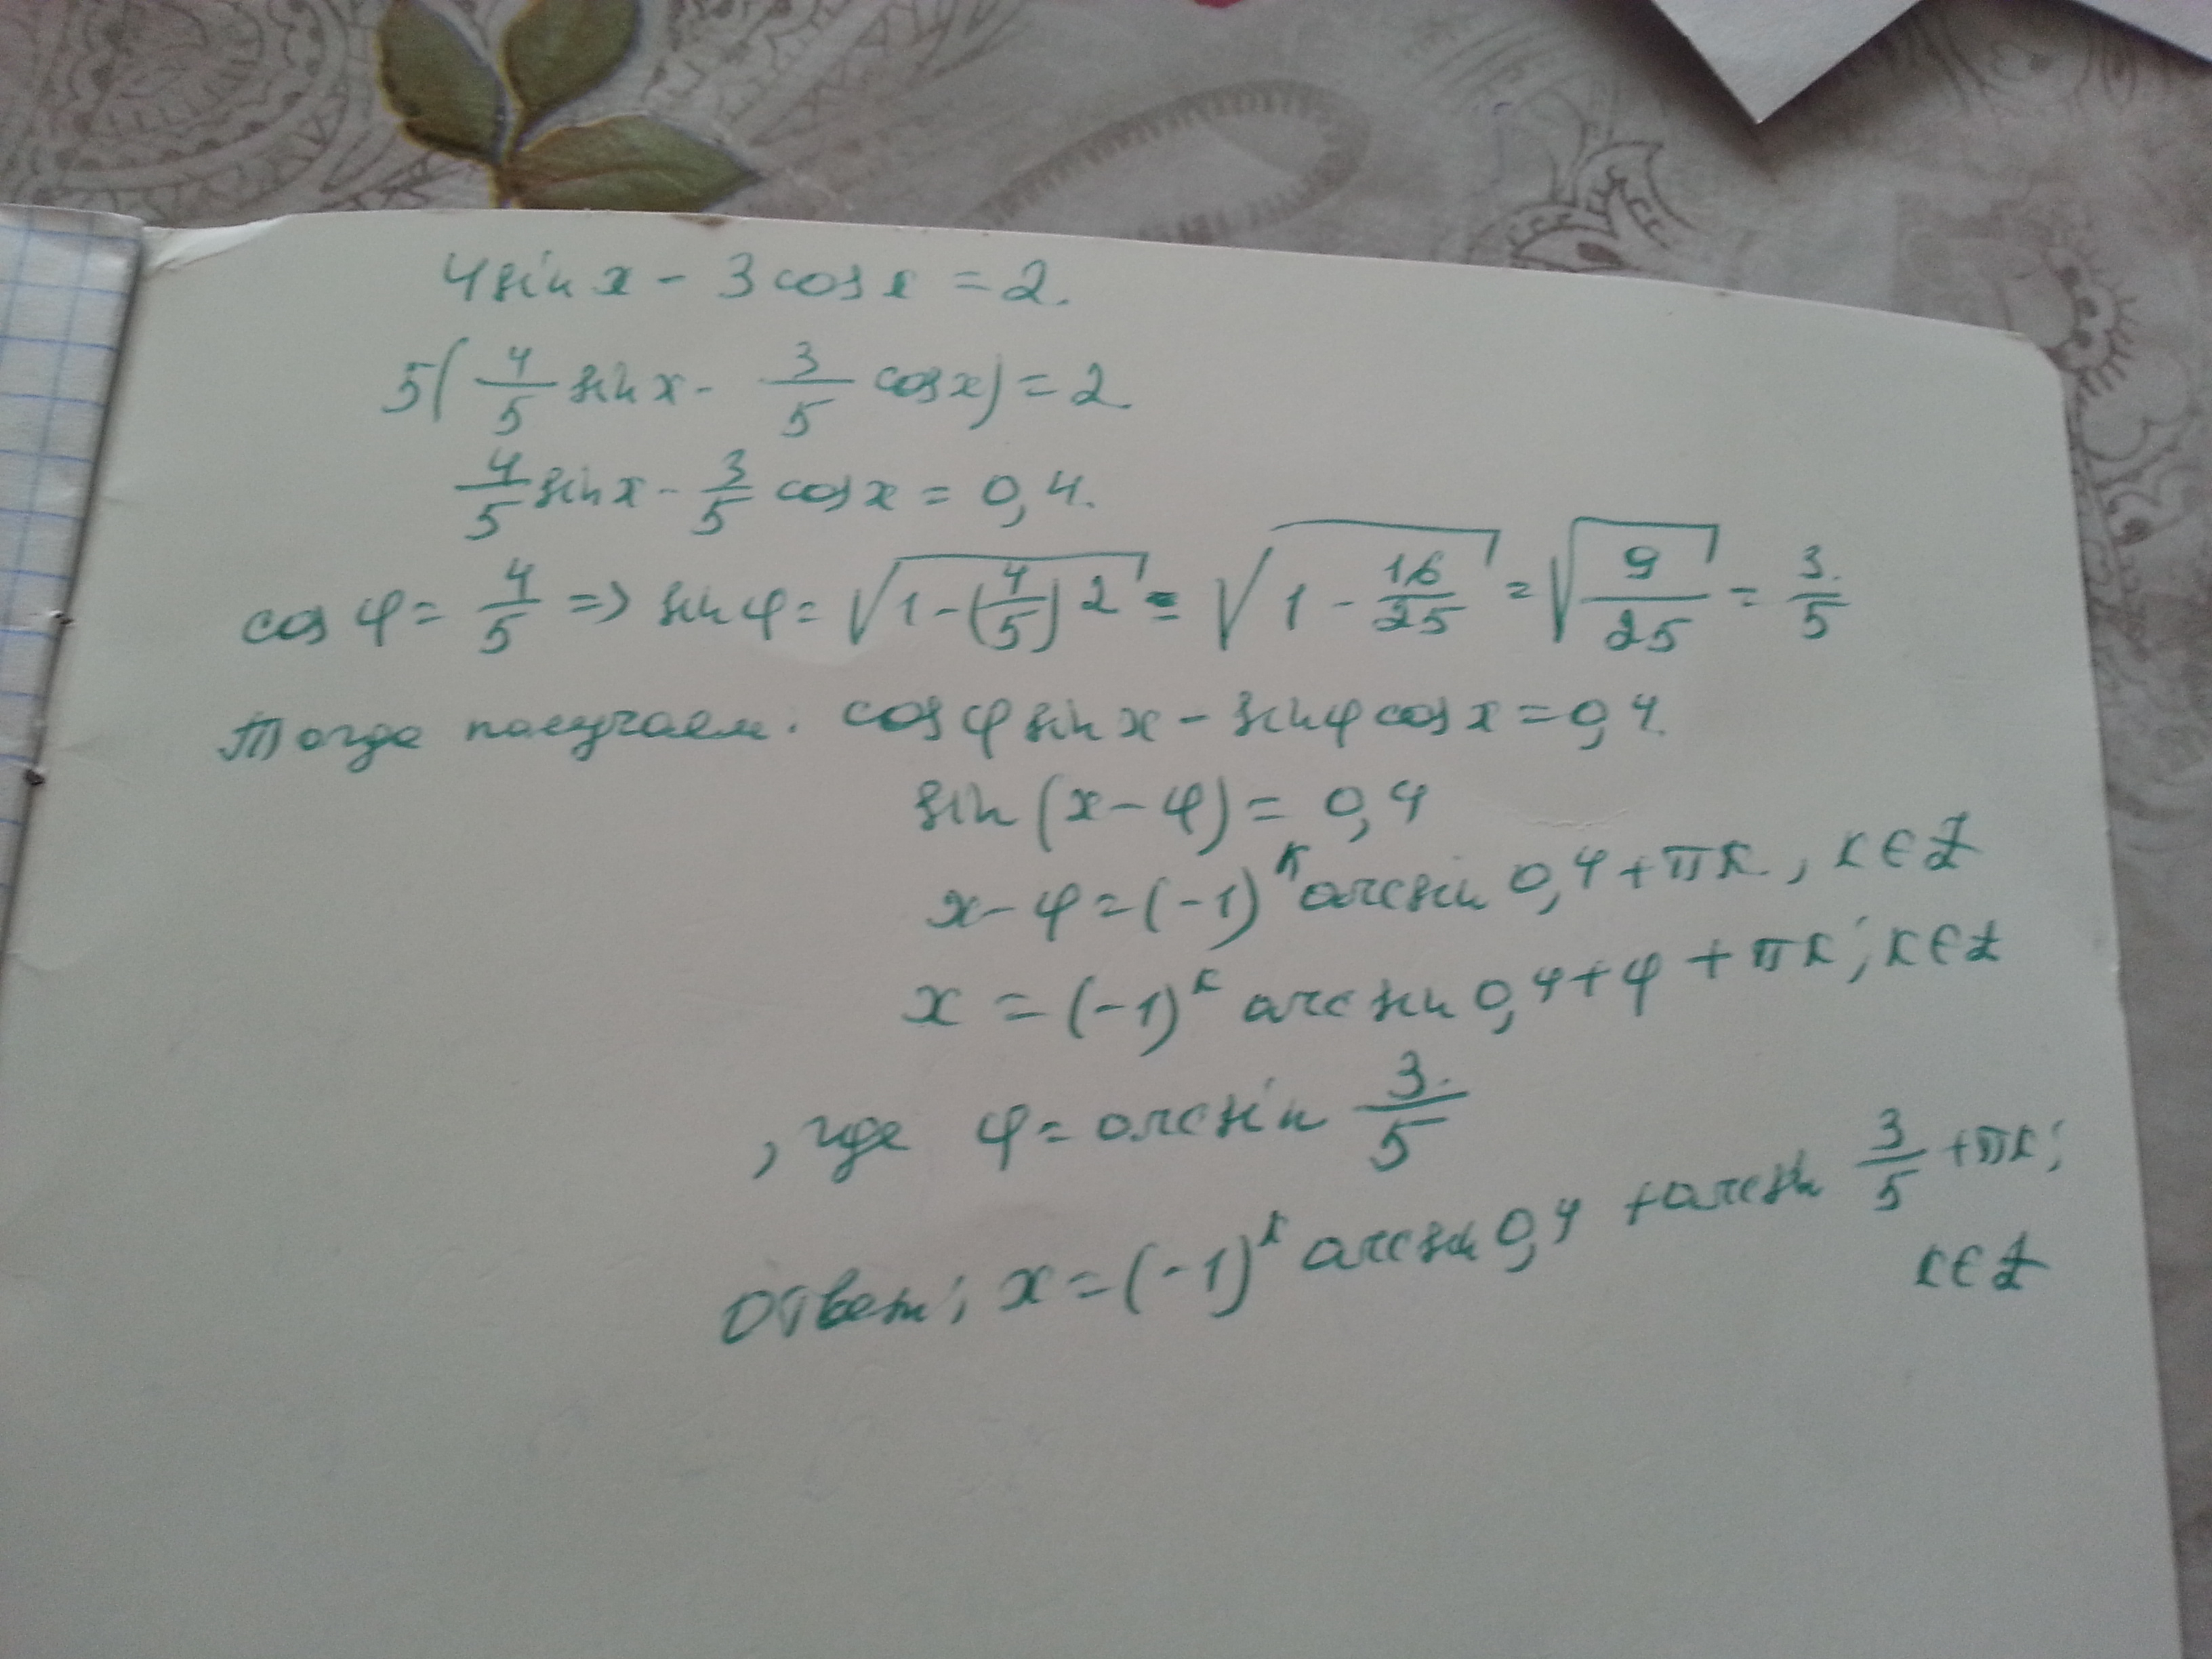 4sin x - 3cos x = 2.
5(4/5 sin x - 3/5 cos x) = 2
4/5 sin x - 3/5 cos x = 0,4.
cos φ = 4/5 => sin φ = √(1-(4/5)2) = √(1 - 16/25) = √(9/25) = 3/5
Тогда получаем. cos φ sin x - sin φ cos x = 0,4.
sin (x - φ) = 0,4
x - φ = (-1)^к arcsin 0,4 + πк, к∈Z
x = (-1)^к arcsin 0,4 + φ + πк; к∈Z
, где φ = arcsin 3/5
Ответ; x = (-1)^к arcsin 0,4 + arcsin 3/5 + πк;
к∈Z